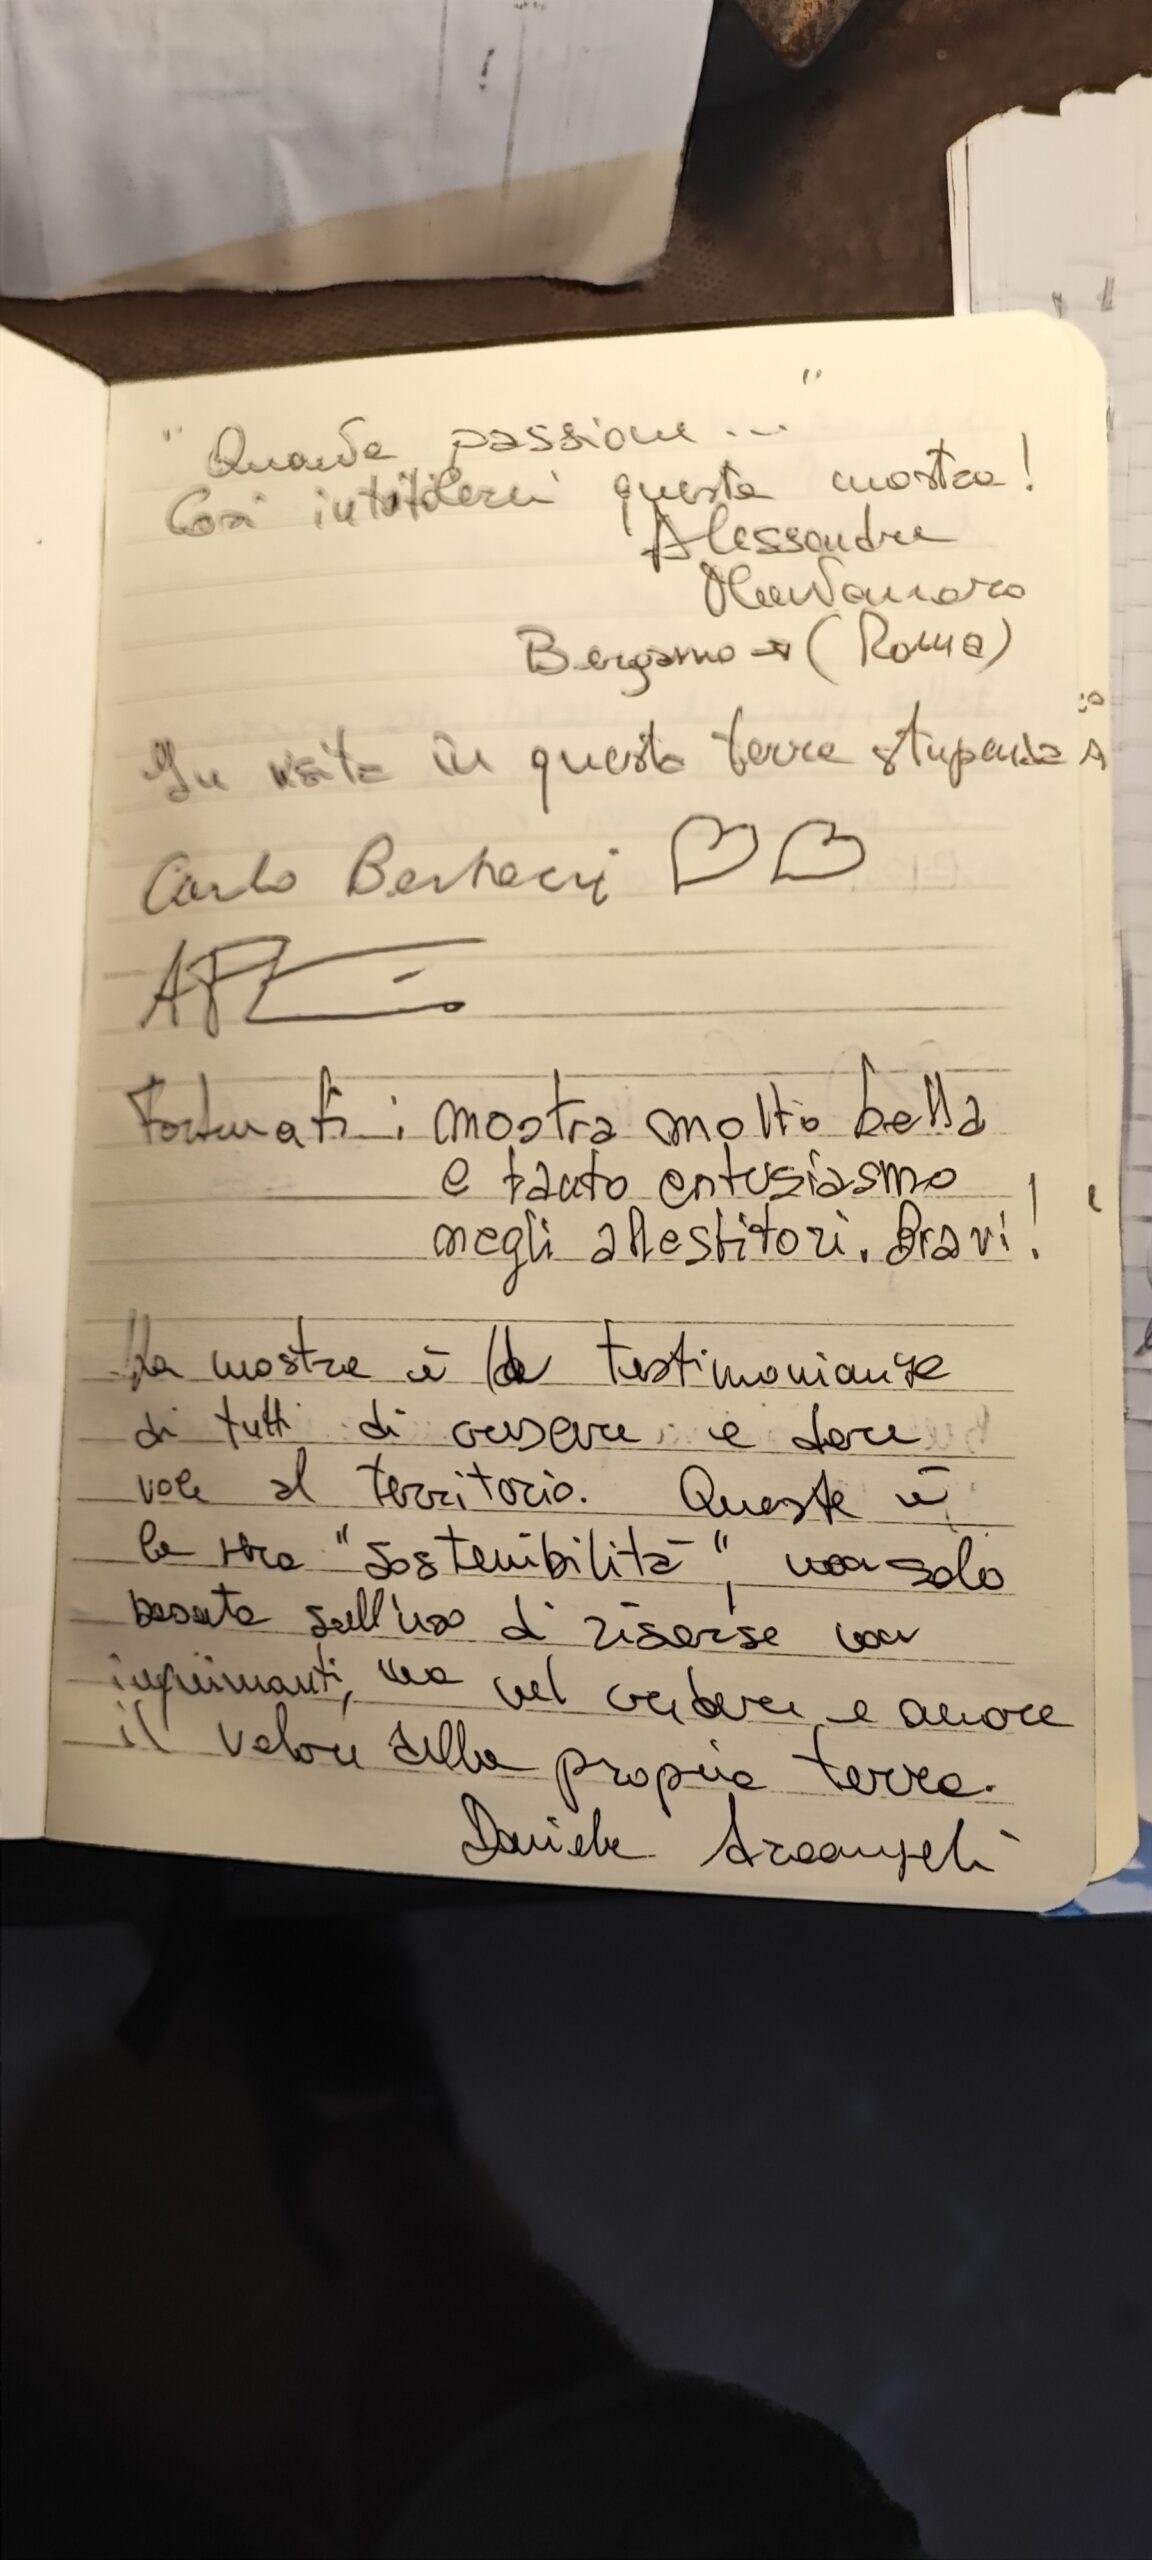 "Quanta passione..."
Così intitolerei questa mostra!
Alessandra
Bergamo → (Roma)
In visita in questa terra stupenda
Carlo
Fortunati: mostra molto bella
e tanto entusiasmo
negli allestitori. Bravi!
La mostra è la testimonianza
di tutti di e dare
voce al territorio. Questa è
la vera "sostenibilità", non solo
basata sull'uso di risorse non
inquinanti, ma nel credere e amare
il valore della propria terra.
Daniele Arcangeli